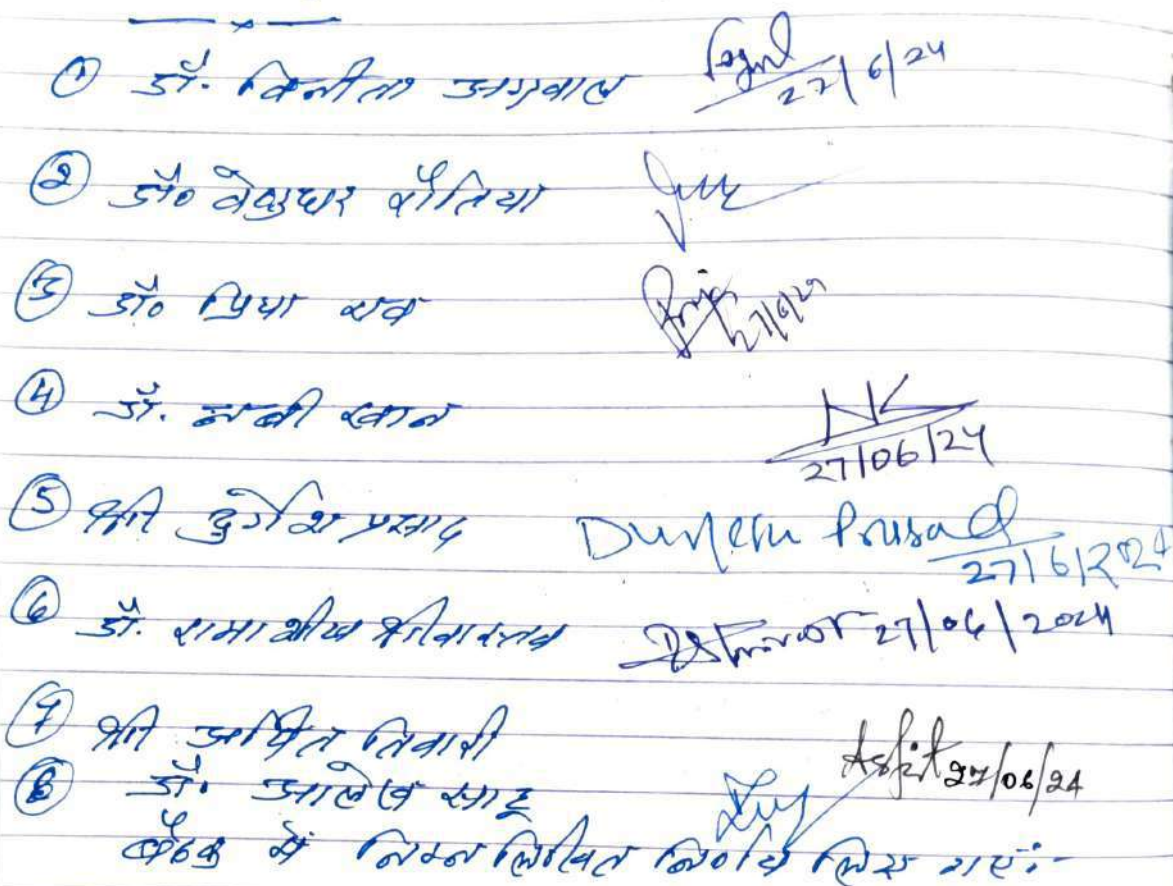 ① डॉ. विनीता अग्रवाल 27/6/24
② डॉ॰ वेणुधर रौतिया
③ डॉ॰ प्रिया राव
④ डॉ. नबी खान NK
27/06/24
⑤ श्री दुर्गेश प्रसाद Durgesh Prasad
27/6/2024
⑥ डॉ. रामाशीष श्रीवास्तव 27/06/2024
⑦ श्री अर्पित तिवारी Arpit 27/06/24
⑧ डॉ. आलेख साहू
बैठक में निम्न लिखित निर्णय लिए गए:-